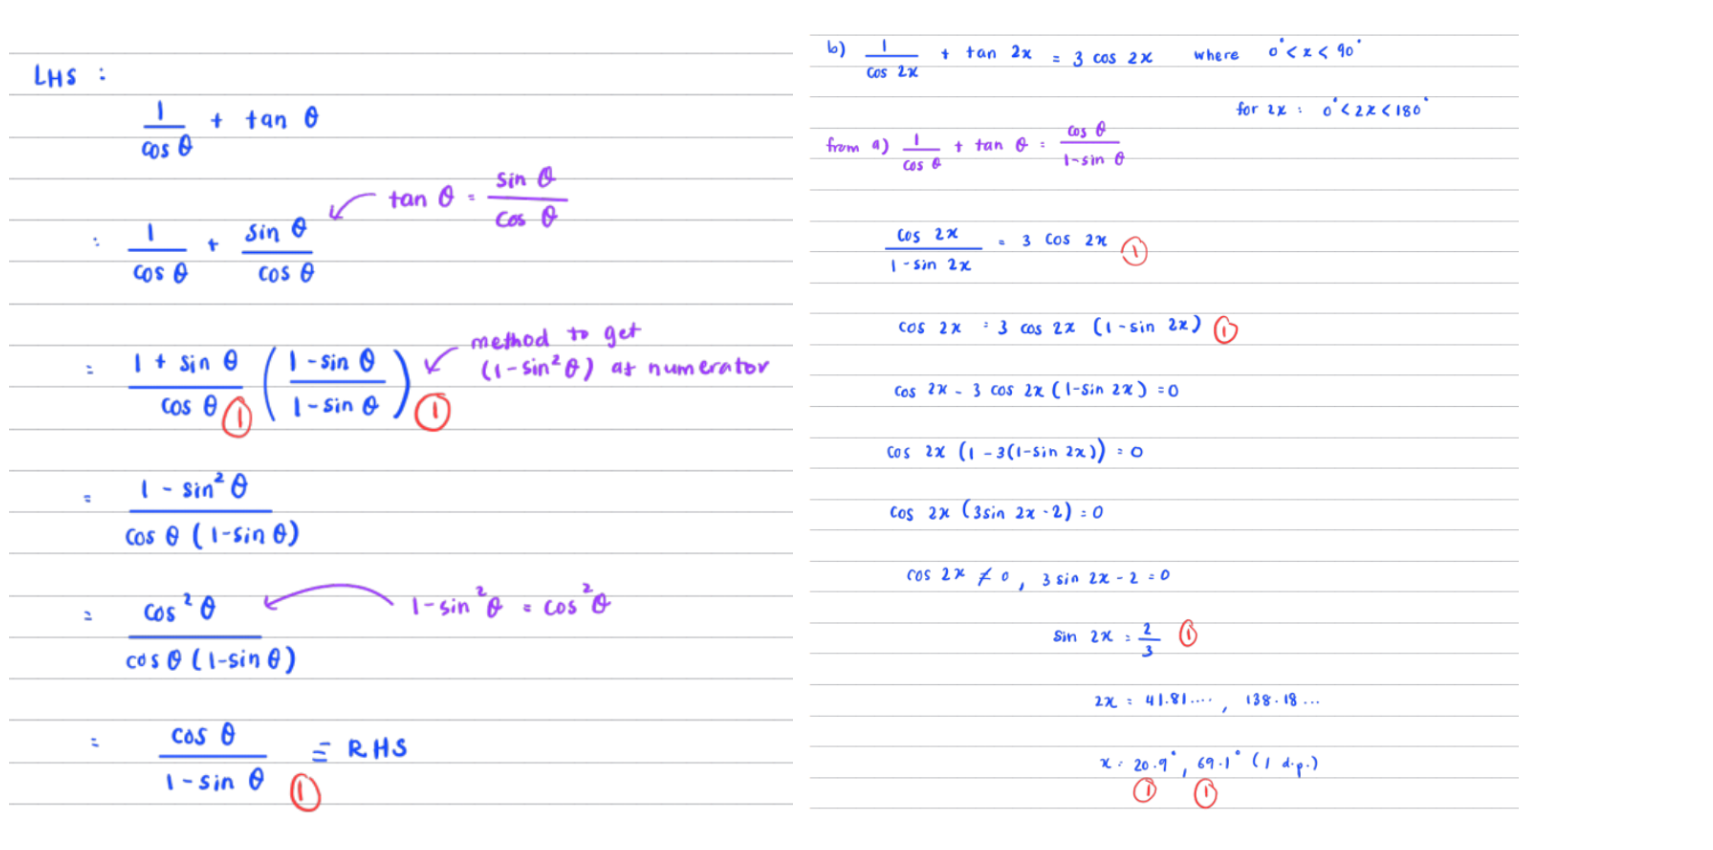 LHS :
1/cos θ + tan θ
tan θ = sin θ/cos θ
= 1/cos θ + sin θ/cos θ
method to get
(1-sin²θ) at numerator
= (1 + sin θ)/cos θ ((1 - sin θ)/(1 - sin θ)) ① ①
= (1 - sin²θ)/(cos θ (1-sin θ))
= cos²θ/(cos θ (1-sin θ))
1-sin²θ = cos²θ
= cos θ/(1 - sin θ) ≡ RHS ①
b) 1/cos 2x + tan 2x = 3 cos 2x where 0° < x < 90°
for 2x : 0° < 2x < 180°
from a) 1/cos θ + tan θ = cos θ/(1-sin θ)
cos 2x/(1 - sin 2x) = 3 cos 2x ①
cos 2x = 3 cos 2x (1-sin 2x) ①
cos 2x - 3 cos 2x (1-sin 2x) = 0
cos 2x (1 - 3(1-sin 2x)) = 0
cos 2x (3sin 2x - 2) = 0
cos 2x ≠ 0 , 3 sin 2x - 2 = 0
sin 2x = 2/3 ①
2x = 41.81.... , 138.18...
x = 20.9° , 69.1° (1 d.p.)
① ①